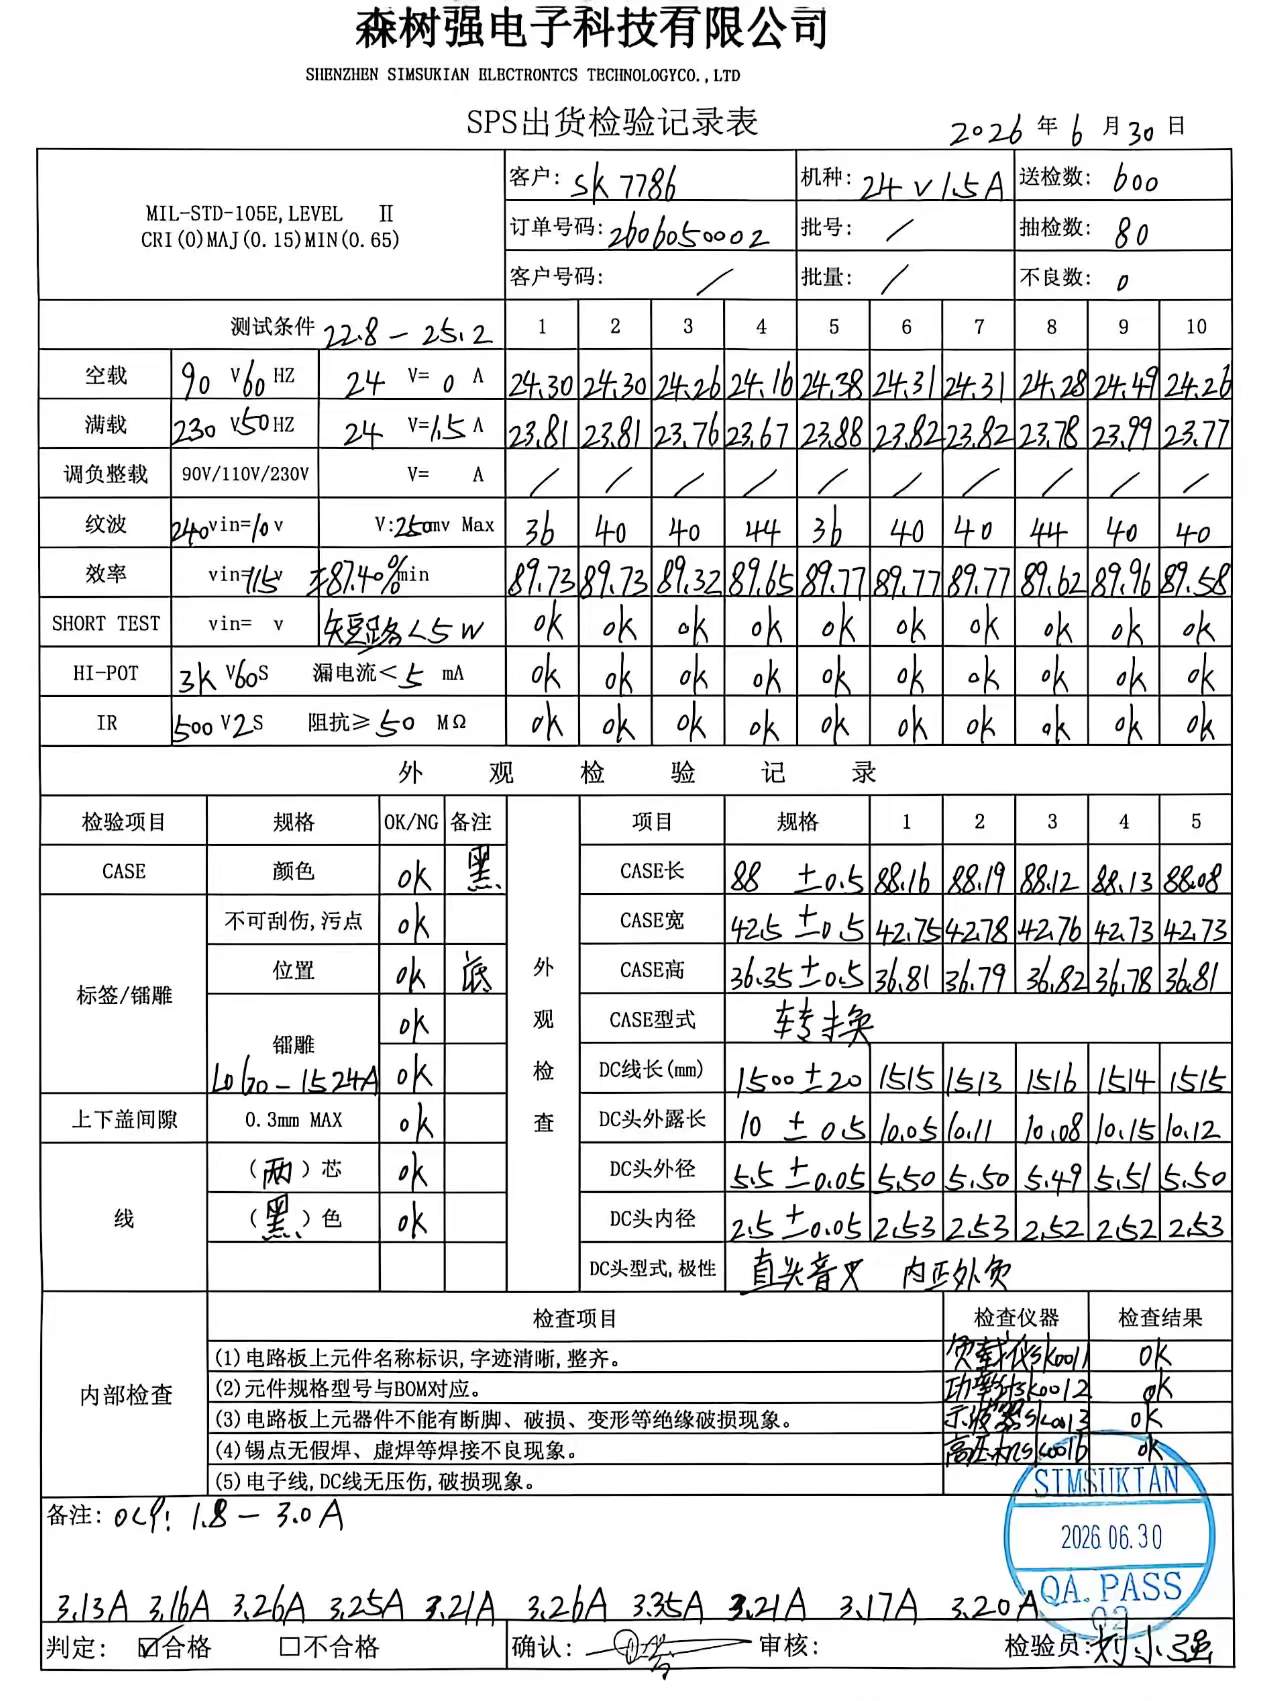 森树强电子科技有限公司
SHENZHEN SIMSUKIAN ELECTRONTCS TECHNOLOGYCO.,LTD
SPS出货检验记录表
2026 年 6 月 30 日
MIL-STD-105E,LEVEL Ⅱ
CRI(0)MAJ(0.15)MIN(0.65)
客户: SK7786 机种: 24V1.5A 送检数: 600
订单号码: 2606050002 批号: / 抽检数: 80
客户号码: / 批量: / 不良数: 0
测试条件 22.8-25.2 1 2 3 4 5 6 7 8 9 10
空载 90 V 60 HZ 24 V= 0 A 24.30 24.30 24.26 24.16 24.38 24.31 24.31 24.28 24.49 24.26
满载 230 V 50 HZ 24 V= 1.5 A 23.81 23.81 23.76 23.67 23.88 23.82 23.82 23.78 23.99 23.77
调负整载 90V/110V/230V V= A / / / / / / / / / /
纹波 240 vin= 10 v V: 250 mv Max 36 40 40 44 36 40 40 44 40 40
效率 vin= 115 v 87.40% min 89.73 89.73 89.32 89.65 89.77 89.77 89.77 89.62 89.96 89.58
SHORT TEST vin= v 短路<5W OK OK OK OK OK OK OK OK OK OK
HI-POT 3K V 60 S 漏电流< 5 mA OK OK OK OK OK OK OK OK OK OK
IR 500 V 2 S 阻抗≥ 50 MΩ OK OK OK OK OK OK OK OK OK OK
外观检验记录
检验项目 规格 OK/NG 备注 项目 规格 1 2 3 4 5
CASE 颜色 OK 黑 CASE长 88 ±0.5 88.16 88.19 88.12 88.13 88.08
不可刮伤,污点 OK CASE宽 42.5 ±0.5 42.75 42.78 42.76 42.73 42.73
标签/镭雕 位置 OK 底 外观检查 CASE高 36.35 ±0.5 36.81 36.79 36.82 36.78 36.81
镭雕 OK CASE型式 转换
1524A OK DC线长(mm) 1500 ±20 1515 1513 1516 1514 1515
上下盖间隙 0.3mm MAX OK DC头外露长 10 ±0.5 10.05 10.11 10.08 10.15 10.12
线 (两)芯 OK DC头外径 5.5 ±0.05 5.50 5.50 5.49 5.51 5.50
(黑)色 OK DC头内径 2.5 ±0.05 2.53 2.53 2.52 2.52 2.53
DC头型式,极性 直头音叉 内正外负
内部检查 检查项目 检查仪器 检查结果
(1)电路板上元件名称标识,字迹清晰,整齐。 负载仪SK0011 OK
(2)元件规格型号与BOM对应。 功率计SK0012 OK
(3)电路板上元器件不能有断脚、破损、变形等绝缘破损现象。 示波器SK0013 OK
(4)锡点无假焊、虚焊等焊接不良现象。 高压机SK0016 OK
(5)电子线,DC线无压伤,破损现象。
SIMSUKIAN
2026.06.30
QA.PASS
02
备注: OCP: 1.8-3.0A
3.13A 3.16A 3.26A 3.25A 3.21A 3.26A 3.35A 3.21A 3.17A 3.20A
判定: ☑合格 □不合格 确认: 审核: 检验员: 刘小强